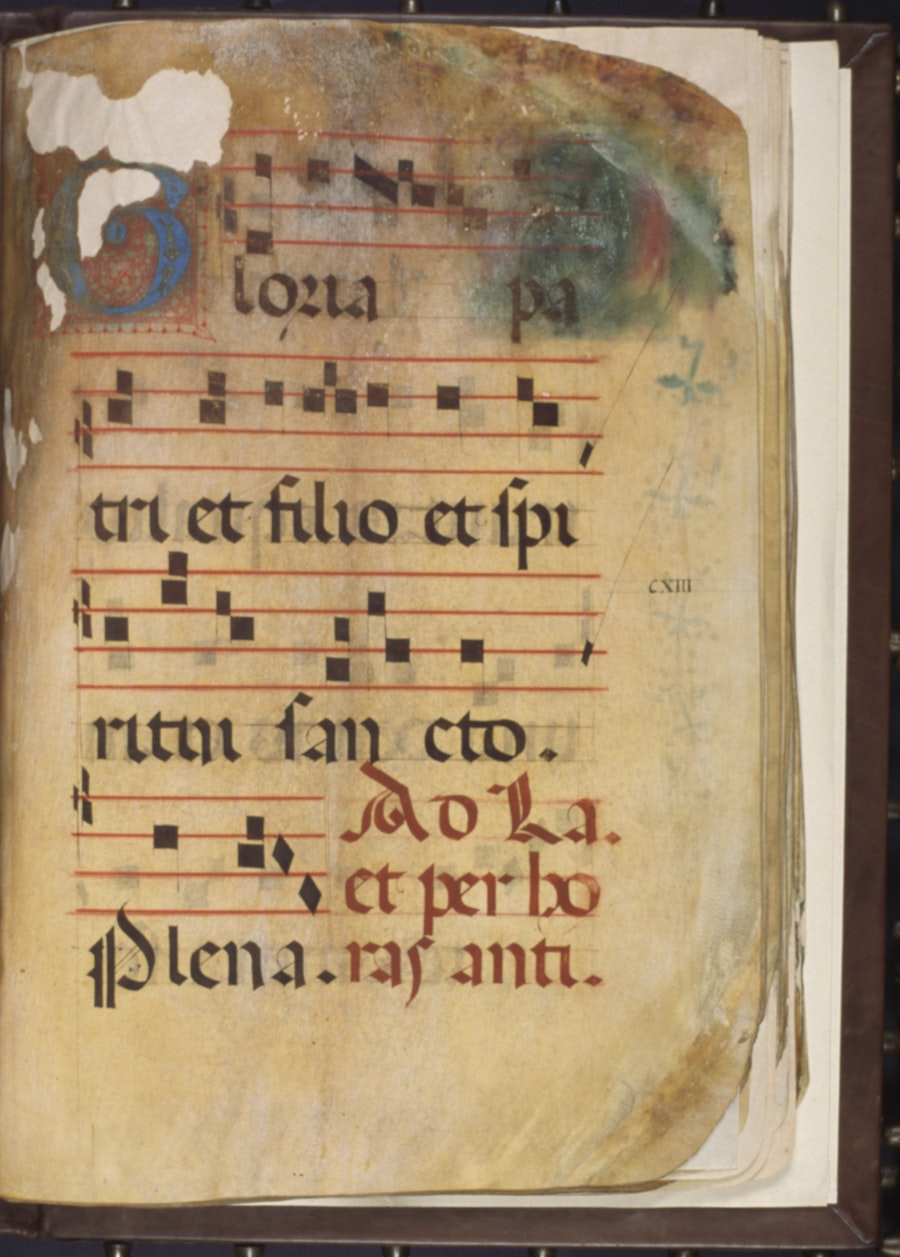 Gloria pa
tri et filio et spi
cxiii
ritui san cto.
Ad La.
et per ho
Plena. ras anti.